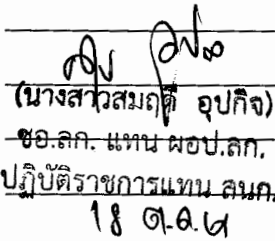 (นางสาวสมฤดี อุปกิจ)
ชอ.ลก. แทน ผอป.ลก.
ปฏิบัติราชการแทน ลนก.
18 ต.ค.